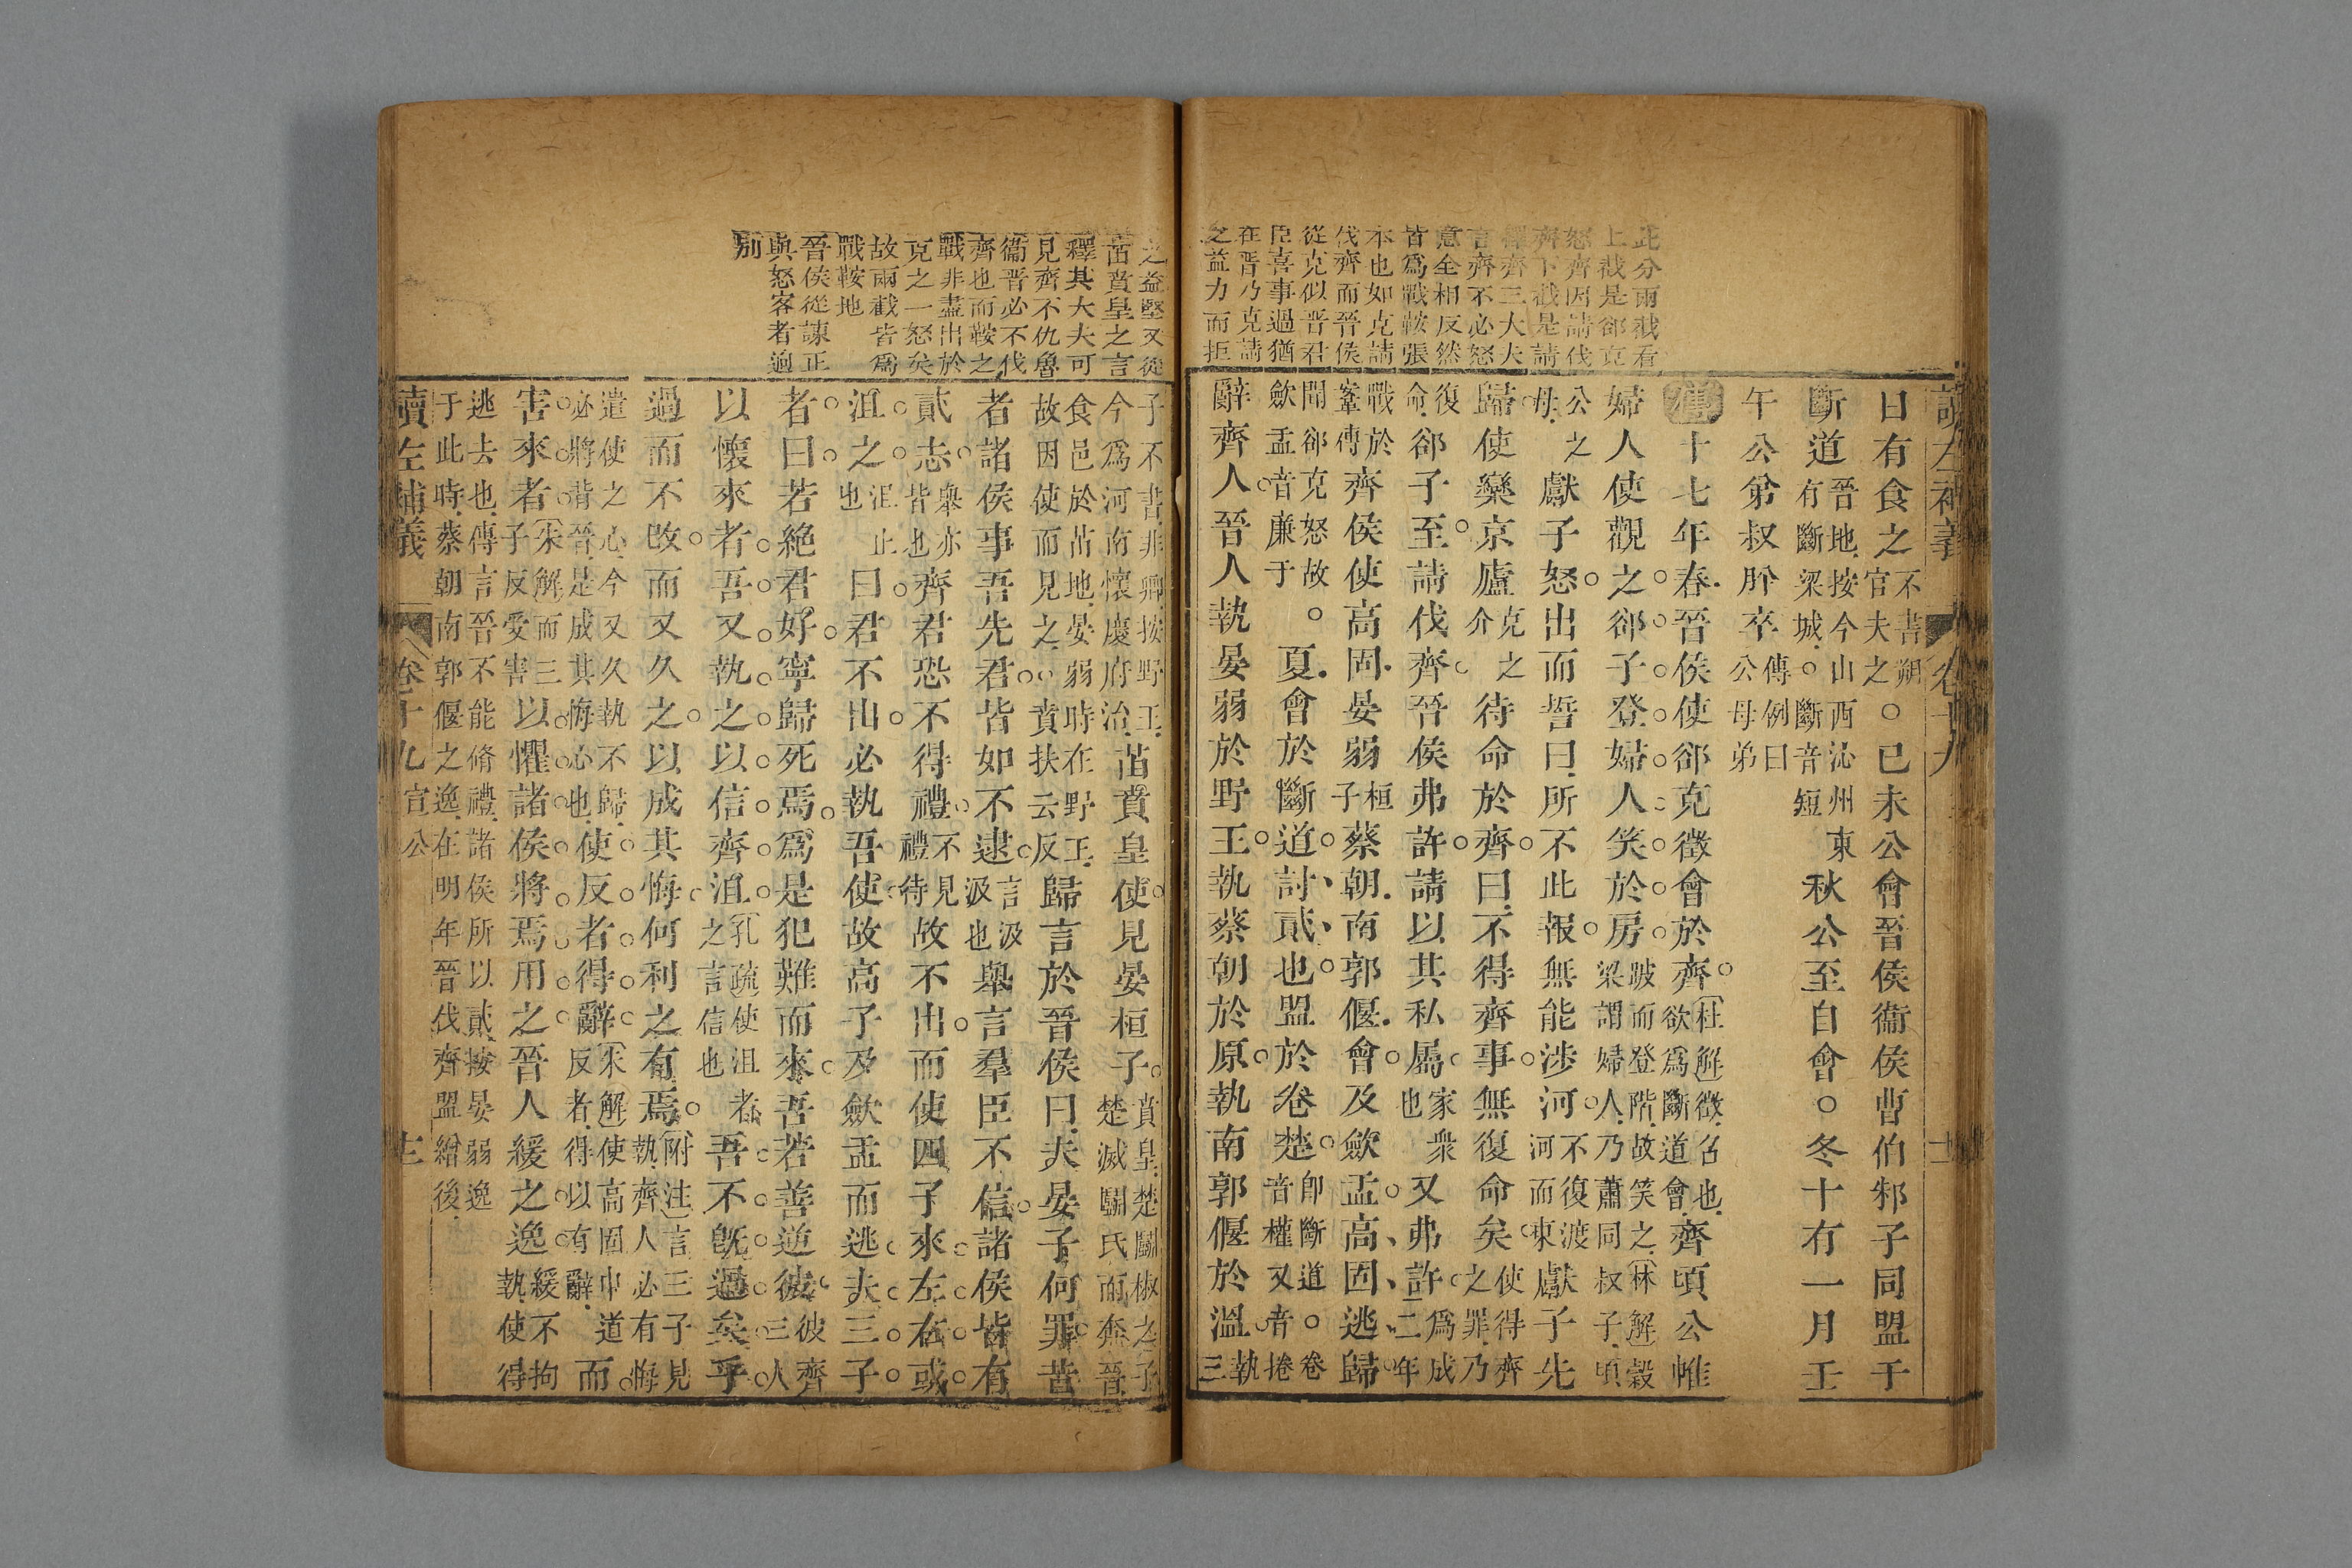 此分兩截看
上截是郤克
怒齊因請伐
齊下截是請
釋齊三大夫
言齊不必怒
意全相反然
皆爲戰鞍張
本也如克請
伐齊而晉侯
從克似晉君
臣喜事過猶
在晉乃克請
之益力而拒
讀左補義 卷十九
日有食之不書朔官夫之○己未公會晉侯衞侯曹伯邾子同盟于
斷道晉地按今山西沁州東有斷梁城○斷音短秋公至自會○冬十有一月壬
午公弟叔肸卒傳例曰公母弟
傳十七年春晉侯使郤克徵會於齊杜解徵召也欲爲斷道會齊頃公帷
婦人使觀之郤子登婦人笑於房跛而登階故笑之林解穀梁謂婦人乃蕭同叔子頃
公之母獻子怒出而誓曰所不此報無能涉河不復渡河而東獻子先
歸使欒京廬克之介待命於齊曰不得齊事無復命矣使得齊之罪乃
復命郤子至請伐齊晉侯弗許請以其私屬家衆也又弗許爲成二年
戰於鞌傳齊侯使高固晏弱桓子蔡朝南郭偃會及歛盂高固逃歸
聞郤克怒故歛盂音廉于○夏會於斷道討貳也盟於卷楚卽斷道○卷音權又音捲
辭齊人晉人執晏弱於野王執蔡朝於原執南郭偃於溫執三
之益堅又從
苗賁皇之言
釋其大夫可
見齊不仇魯
衞晉必不伐
齊也而鞍之
戰非盡出於
克之一怒矣
故兩截皆爲
戰鞍地
晉侯從諫正
與怒客者逈
別
子不書非卿按野王今爲河南懷慶府治苗賁皇使見晏桓子賁皇楚鬭椒之子楚滅鬭氏而奔晉
食邑於苗地晏弱時在野王故因使而見之○賁扶云反歸言於晉侯曰夫晏子何罪昔
者諸侯事吾先君皆如不逮言汲汲也舉言羣臣不信諸侯皆有
貳志舉亦皆也齊君恐不得禮不見禮待故不出而使四子來左右或
沮之沮止也曰君不出必執吾使故高子及歛盂而逃夫三子
者曰若絶君好寧歸死焉爲是犯難而來吾若善逆彼彼齊三人
以懷來者吾又執之以信齊沮孔疏使沮者之言信也吾不旣過矣乎
過而不改而又久之以成其悔何利之有焉附注言三子見執齊人必有悔
遣使之心今又久執不歸必將背晉是成其悔心也使反者得辭朱解使高固中道反者得以有辭而
害來者朱解而三子反受害以懼諸侯將焉用之晉人緩之逸緩不拘執使得
逃去也傳言晉不能脩禮諸侯所以貳按晏弱逸于此時蔡朝南郭偃之逸在明年晉伐齊盟繒後
讀左補義 卷十九 宣公